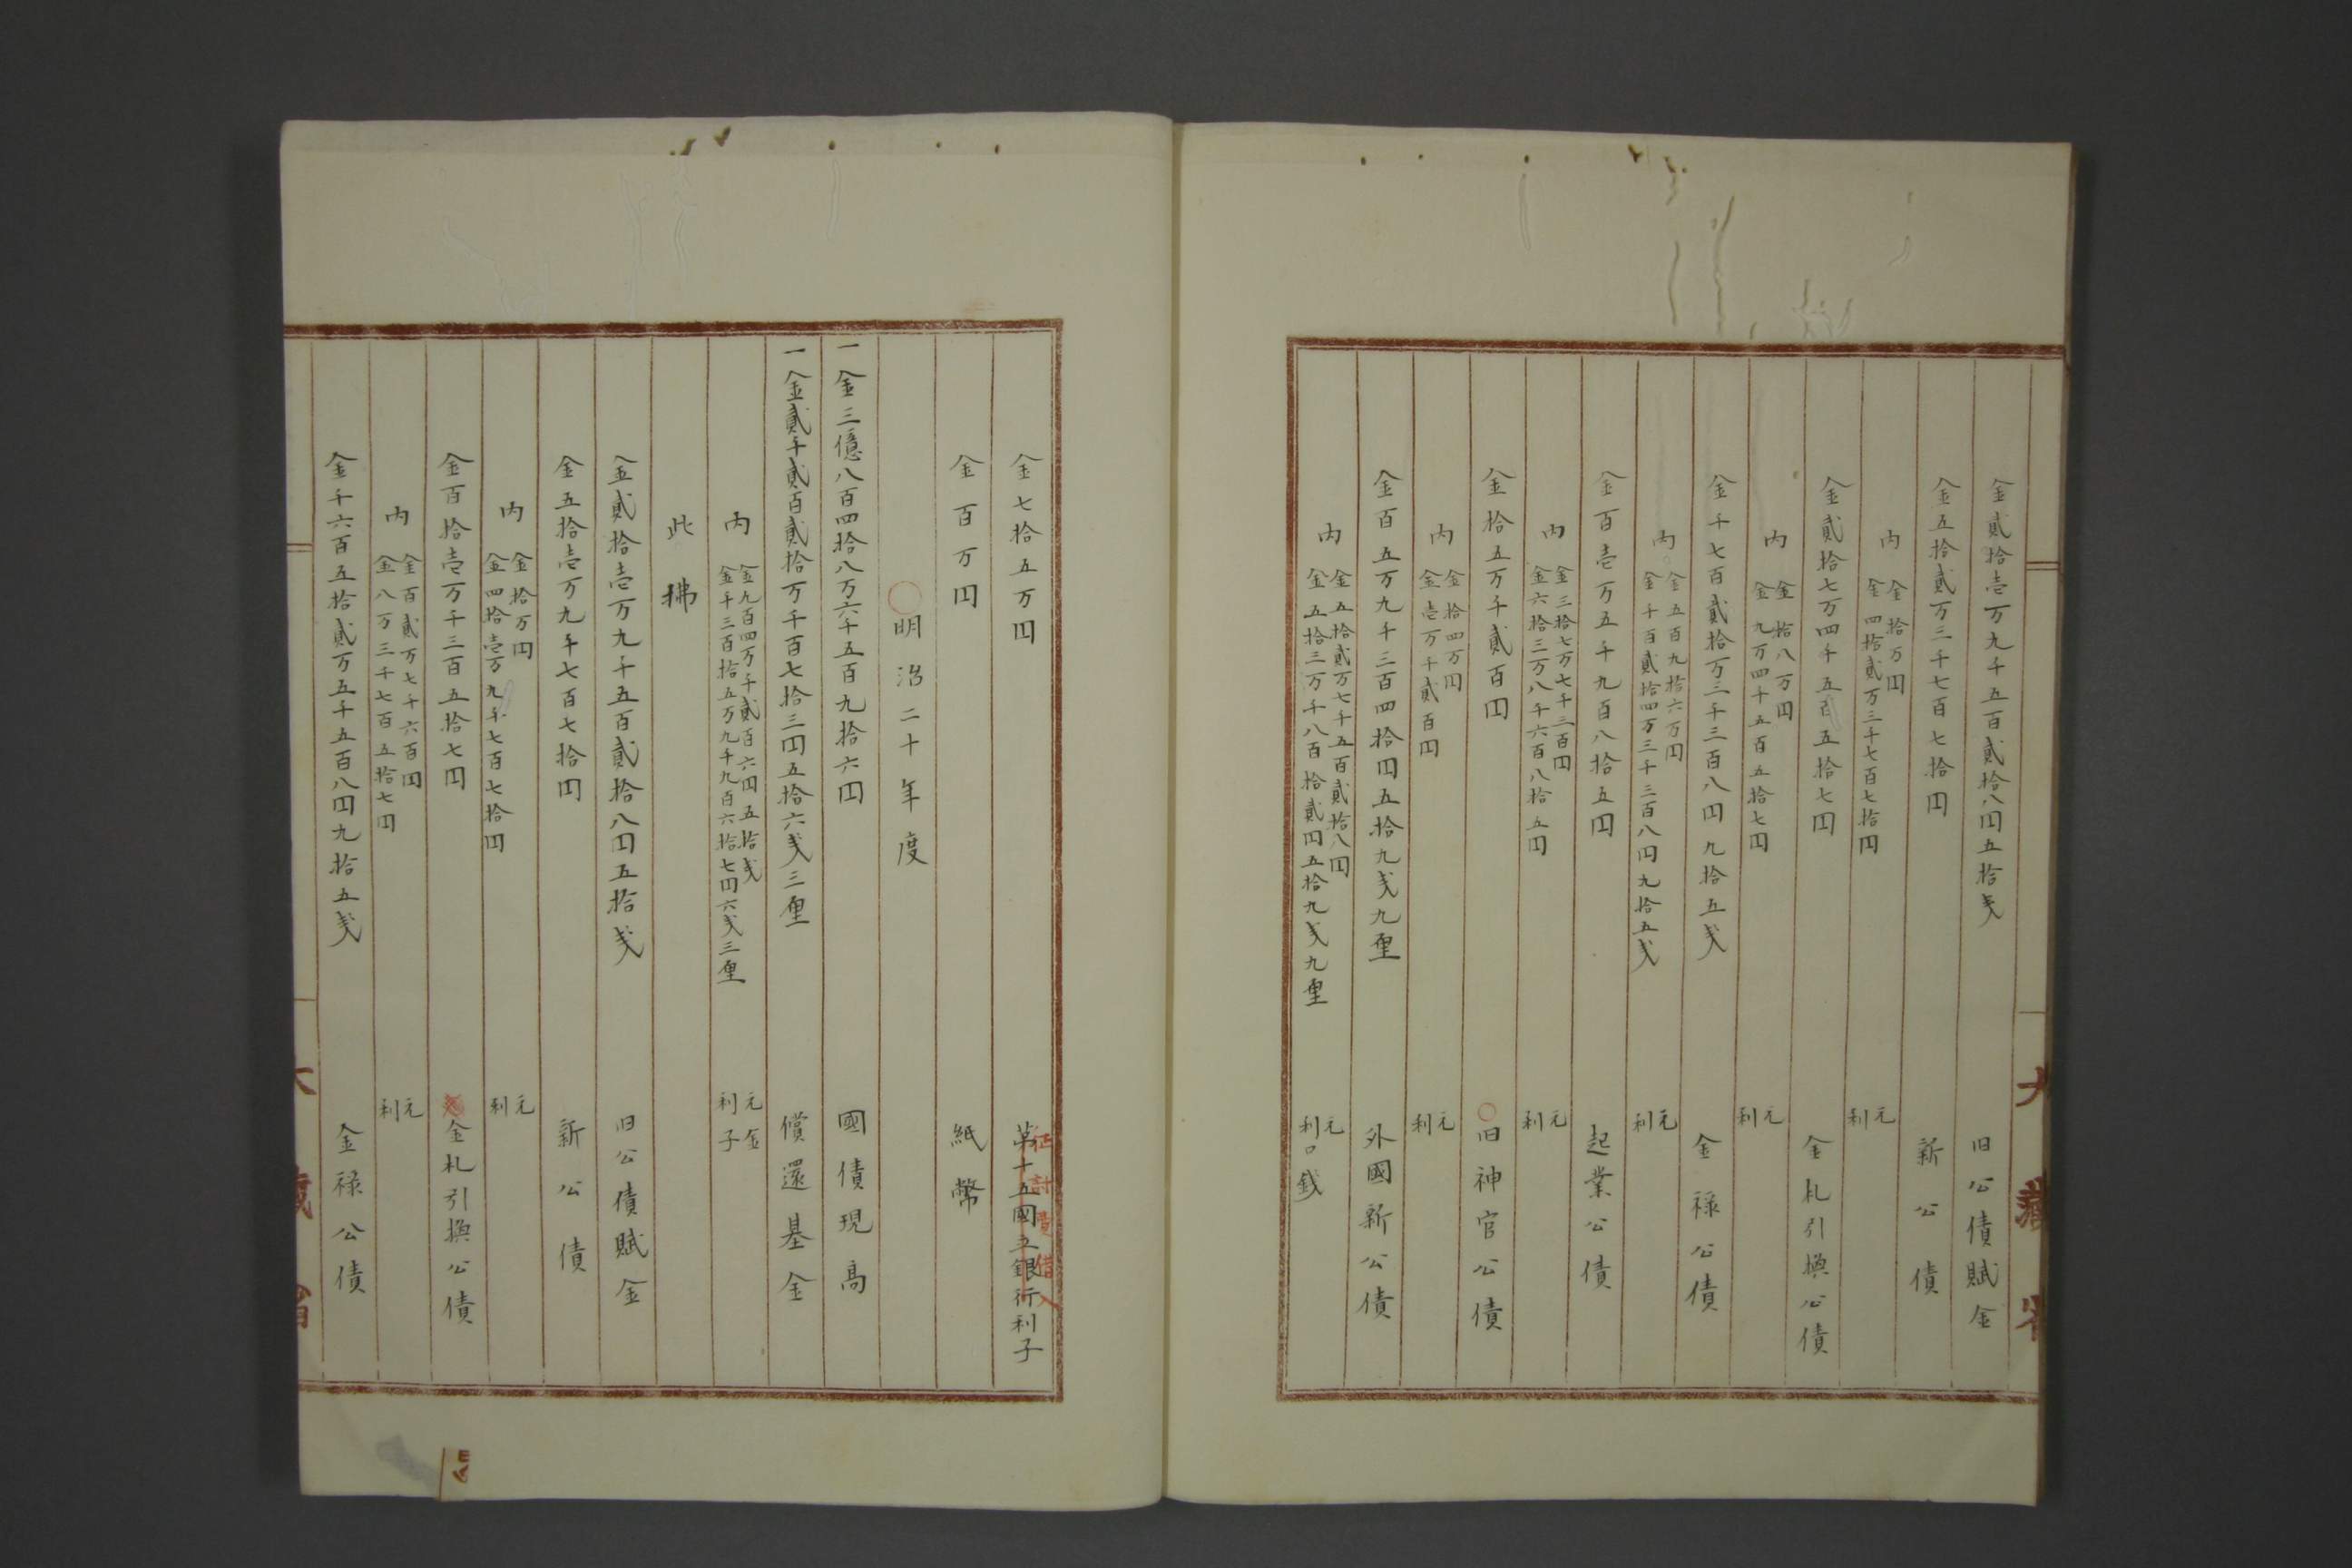 金貳拾壱万九千五百貳拾八円五拾戔 旧公債賦金
金五拾貳万三千七百七拾円 新公債
内 金拾万円 元
金四拾貳万三千七百七拾円 利
金貳拾七万四千五百五拾七円 金札引換公債
内 金拾八万円 元
金九万四千五百五拾七円 利
金千七百貳拾万三千三百八円九拾五戔 金禄公債
内 金五百九拾六万円 元
金千百貳拾四万三千三百八円九拾五戔 利
金百壱万五千九百八拾五円 起業公債
内 金三拾七万七千三百円 元
金六拾三万八千六百八拾五円 利
金拾五万千貳百円 〇旧神官公債
内 金拾四万円 元
金壱万千貳百円 利
金百五万九千三百四拾円五拾九戔九厘 外國新公債
内 金五拾貳万七千五百貳拾八円 元
金五拾三万千八百拾貳円五拾九戔九厘 利口銭
大藏省
金七拾五万円 第十五國立銀行利子
征討費借入
金百万円 紙幣
〇明治二十年度
一金三億八百四拾八万六千五百九拾六円 國債現高
一金貳千貳百貳拾万千百七拾三円五拾六戔三厘 償還基金
内 金九百四万千貳百六円五拾戔 元金
金千三百拾五万九千九百六拾七円六戔三厘 利子
此拂
金貳拾壱万九千五百貳拾八円五拾戔 旧公債賦金
金五拾壱万九千七百七拾円 新公債
内 金拾万円 元
金四拾壱万九千七百七拾円 利
金百拾壱万千三百五拾七円 金札引換公債
内 金百貳万七千六百円 元
金八万三千七百五拾七円 利
金千六百五拾貳万五千五百八円九拾五戔 金禄公債
大藏省